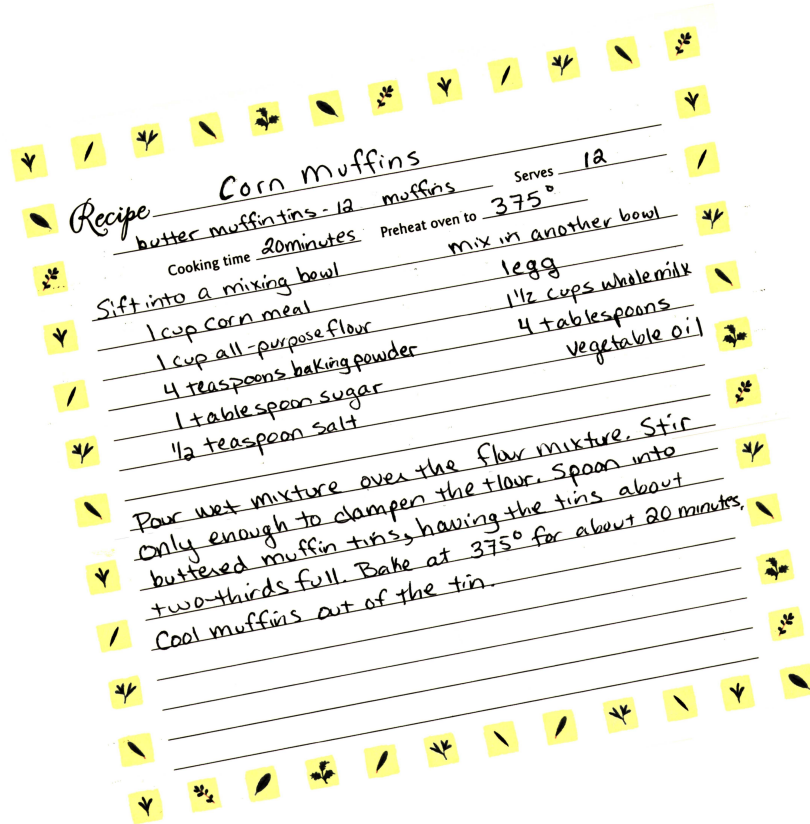 Recipe Corn muffins
butter muffin tins - 12 muffins Serves 12
Cooking time 20 minutes Preheat oven to 375°
Sift into a mixing bowl
1 cup corn meal
1 cup all-purpose flour
4 teaspoons baking powder
1 tablespoon sugar
1/2 teaspoon salt
mix in another bowl
1 egg
1 1/2 cups whole milk
4 tablespoons
vegetable oil
Pour wet mixture over the flour mixture. Stir
only enough to dampen the flour. Spoon into
buttered muffin tins, having the tins about
two-thirds full. Bake at 375° for about 20 minutes.
Cool muffins out of the tin.